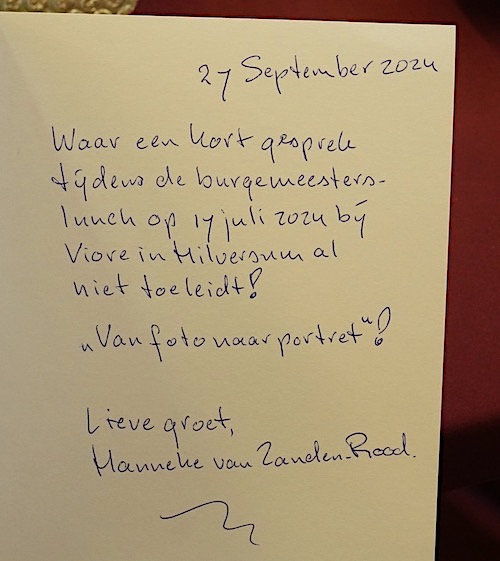 27 September 2024
Waar een kort gesprek
tijdens de burgemeesters-
lunch op 17 juli 2024 bij
Viore in Hilversum al
niet toe leidt!
„Van foto naar portret"!
Lieve groet,
Hanneke van Zanden-Rood.